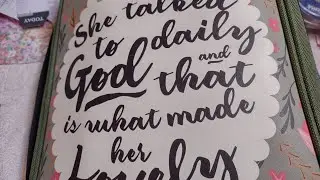 She talked
to daily
God and
that
is what made
her
Lovely
TODAY